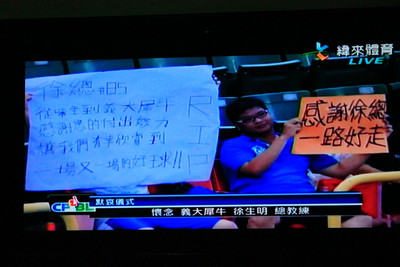 徐總 #85
從味全到義大犀牛
感謝您的付出努力
讓我們有幸欣賞到
一場又一場的好球!!
RIP
感謝徐總
一路好走
緯來體育
LIVE
CPBL
默哀儀式
懷念 義大犀牛 徐生明 總教練